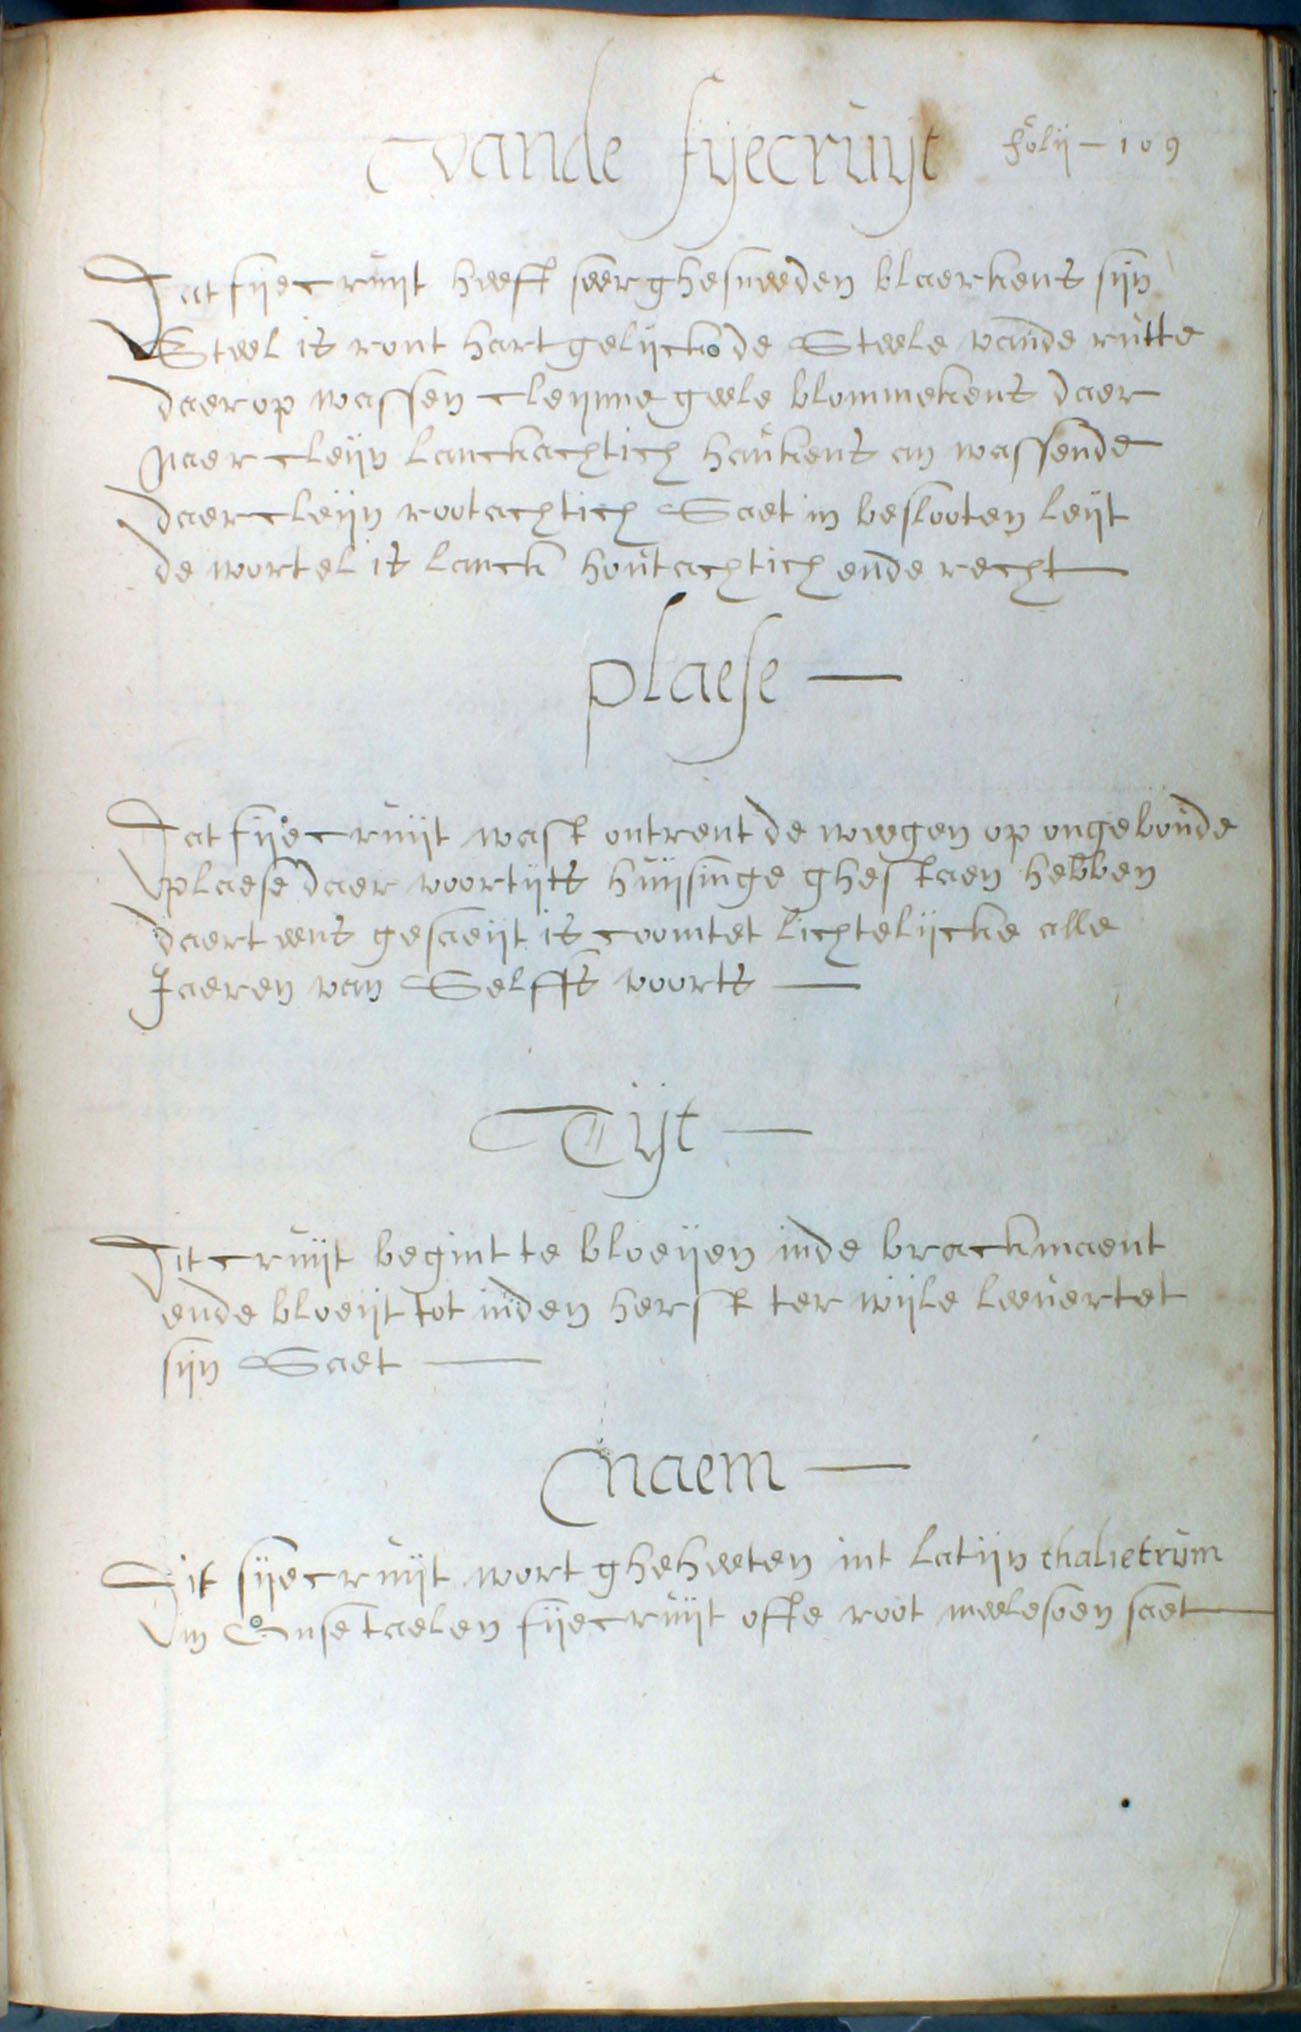 vande fijecruijt folij - 109
Dat fijecruijt heeft seer ghesneeden blaerkens sijn
Steel is ront hart gelijck de Steele vande rutte
daer op wassen cleijnne geele blommekens daer
naer cleijn lanckachtich haukens an wassende
daer cleijn rootachtich Saet in beslooten leijt
de wortel is lanck houtachtich ende recht
plaese
Dat fijecruijt wast ontrent de weegen op ongeboude
plaese daer voortijts huijsinge ghestaen hebben
daert eens gesaeijt is coomtet lichtelijcke alle
Jaeren van Selffs voorts
Tijt
Dit cruijt begint te bloeijen inde brackmaent
ende bloeijt tot inden herfst ter wijle leevertet
sijn Saet
naem
Dit fijecruijt wort gheheeten int latijn thalietrum
in Onse taelen fijecruijt ofte root meelesoen saet